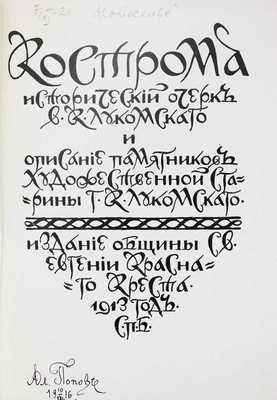 Кострома
историческiй очеркъ
В. К. Лукомскаго
и
описанiе памятниковъ
художественной ста-
рины Г. К. Лукомскаго.
изданiе общины св.
евгенiи красна=
го креста.
1913 годъ.
Спб.
Ал. Поповъ